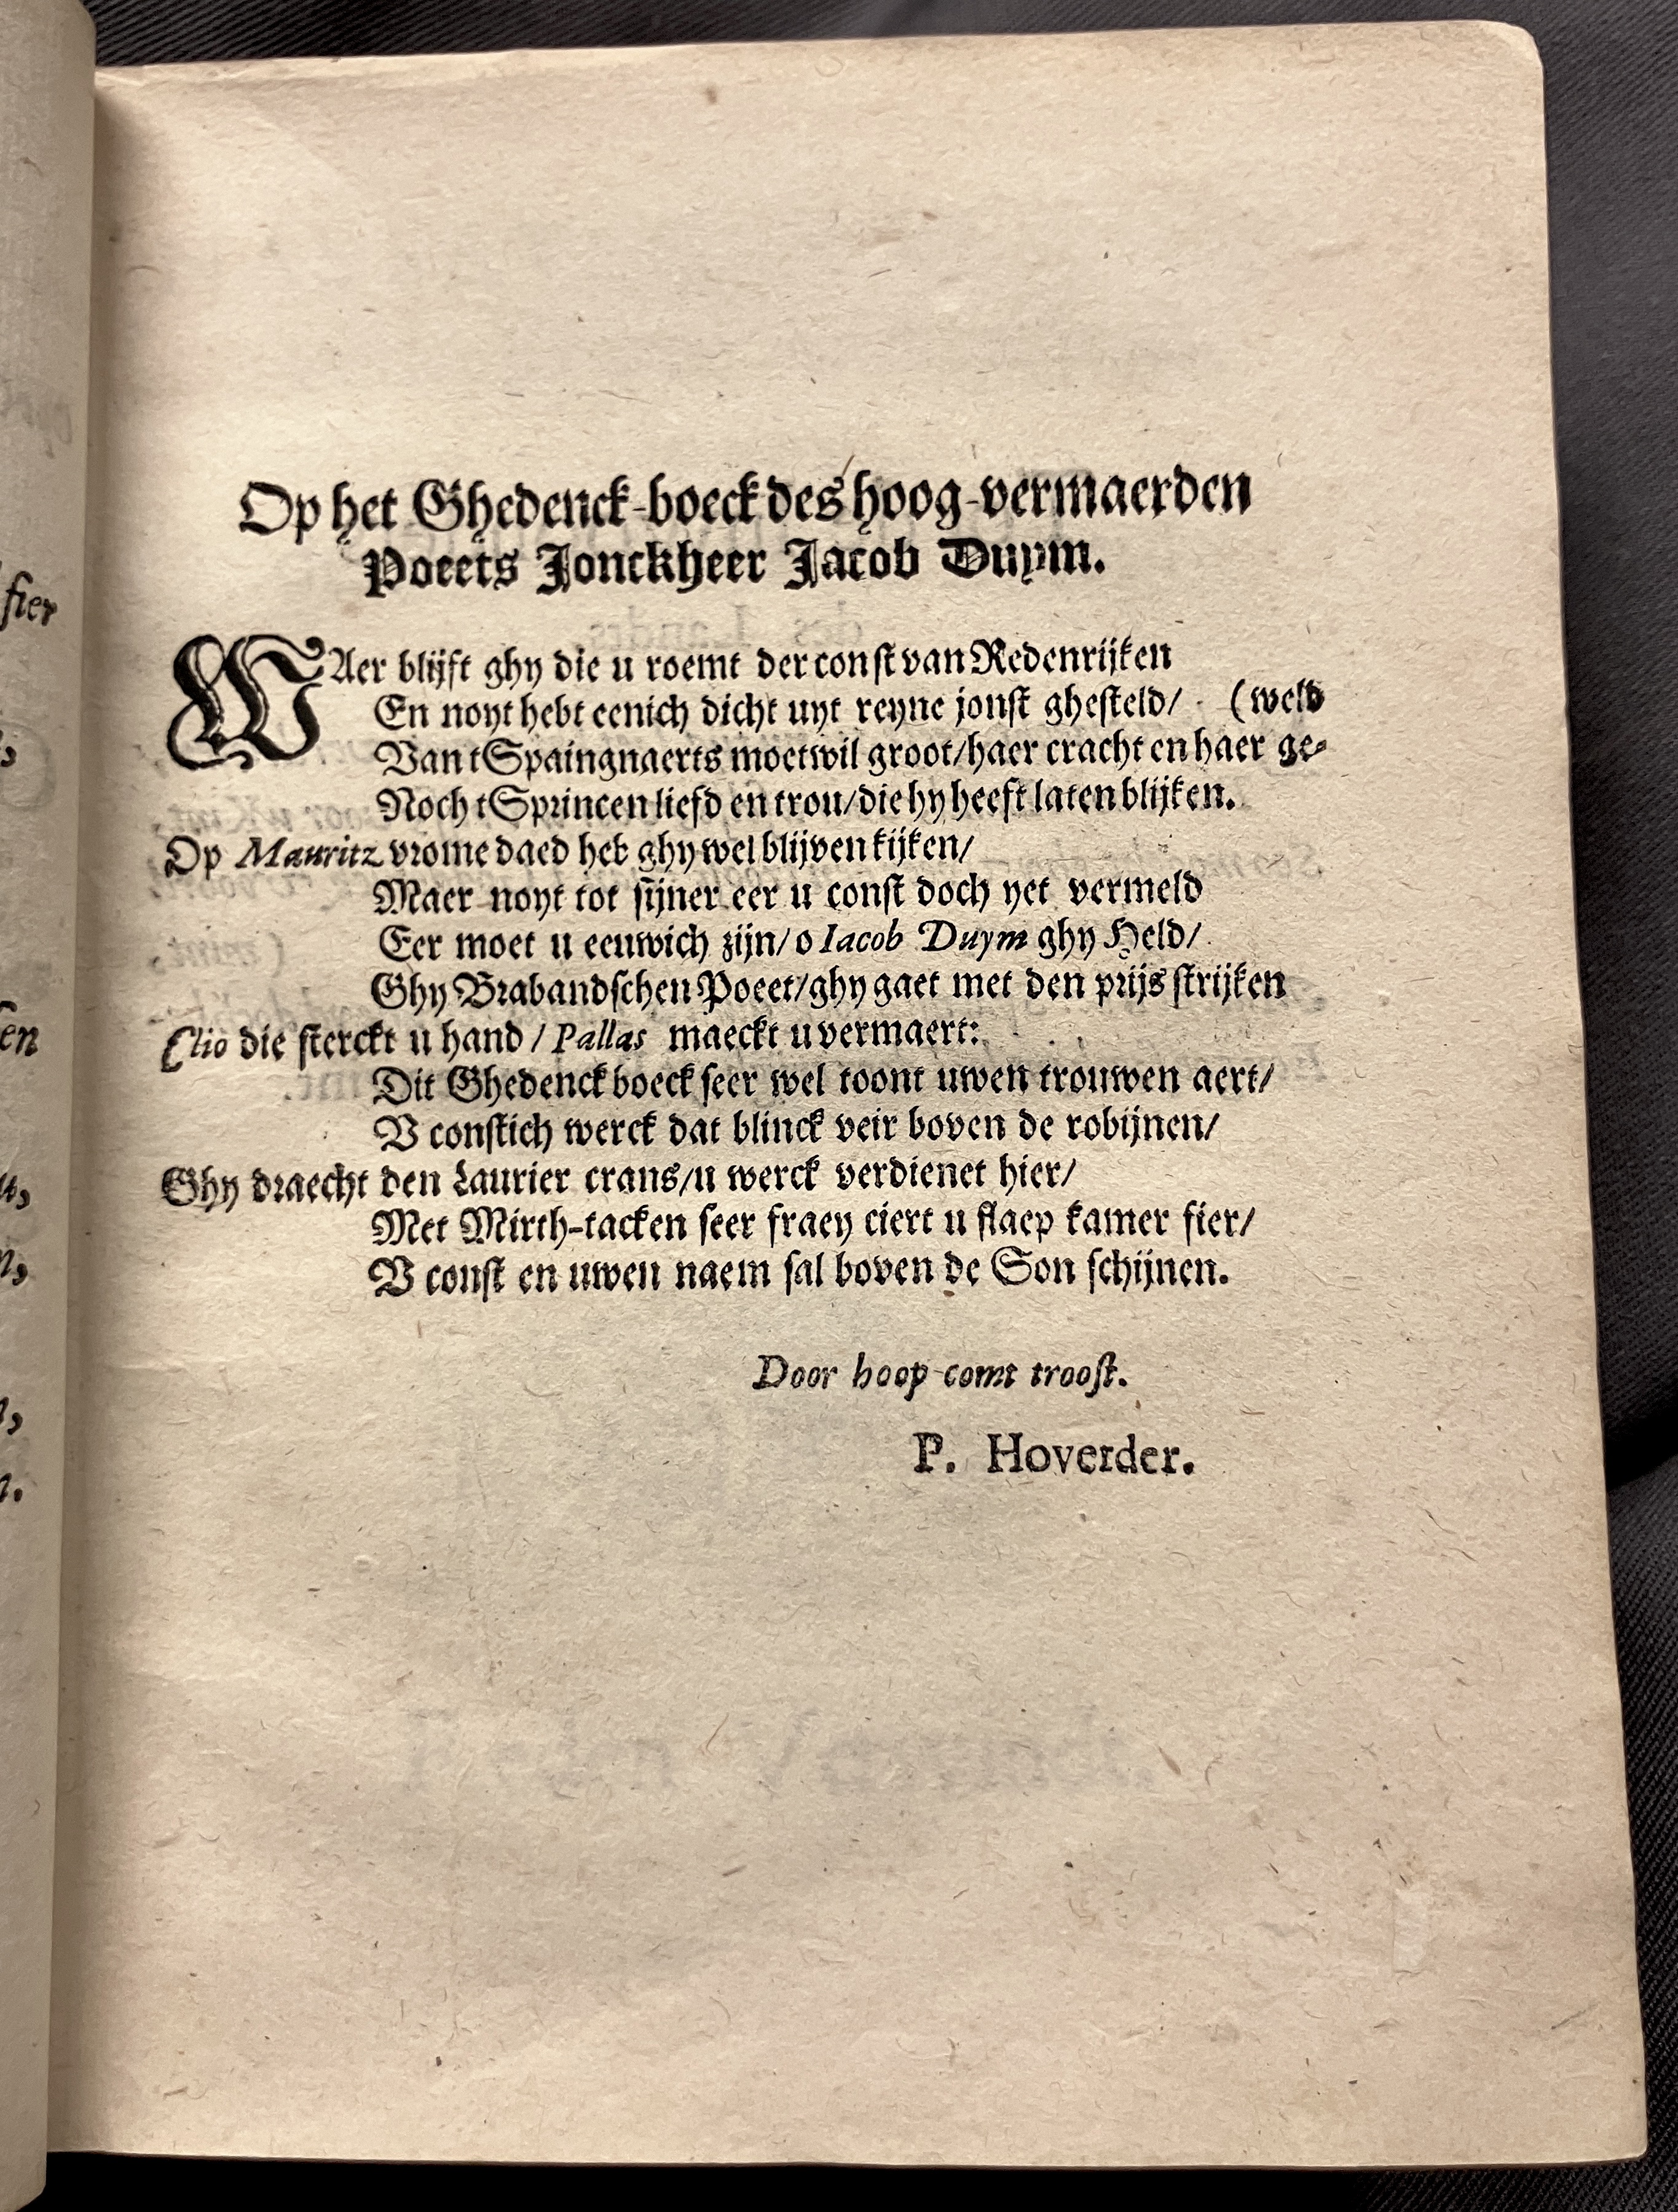 Op het Ghedenck-boeck des hoog-vermaerden
Poeets Jonckheer Jacob Duym.
WAer blijft ghy die u roemt der const van Redenrijken
En noyt hebt eenich dicht uyt reyne jonst ghesteld/ (weld
Van tSpaingnaerts moetwil groot/haer cracht en haer ge-
Noch tSprincen liefd en trou/die hy heeft laten blijken.
Op Mauritz vrome daed heb ghy wel blijven kijken/
Maer noyt tot sijner eer u const doch yet vermeld
Eer moet u eeuwich zijn/o Iacob Duym ghy Held/
Ghy Brabandschen Poeet/ghy gaet met den prijs strijken
Clio die sterckt u hand/Pallas maeckt u vermaert:
Dit Ghedenck boeck seer wel toont uwen trouwen aert/
V constich werck dat blinck veir boven de robijnen/
Ghy draecht den Laurier crans/u werck verdienet hier/
Met Mirth-tacken seer fraey ciert u slaep kamer fier/
V const en uwen naem sal boven de Son schijnen.
Door hoop comt troost.
P. Hoverder.